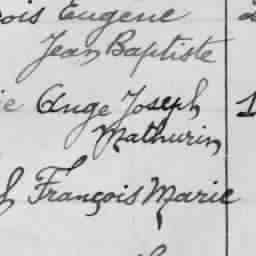 ois Eugene
Jean Baptiste
ie Ange Joseph 1
Mathurin
François Marie